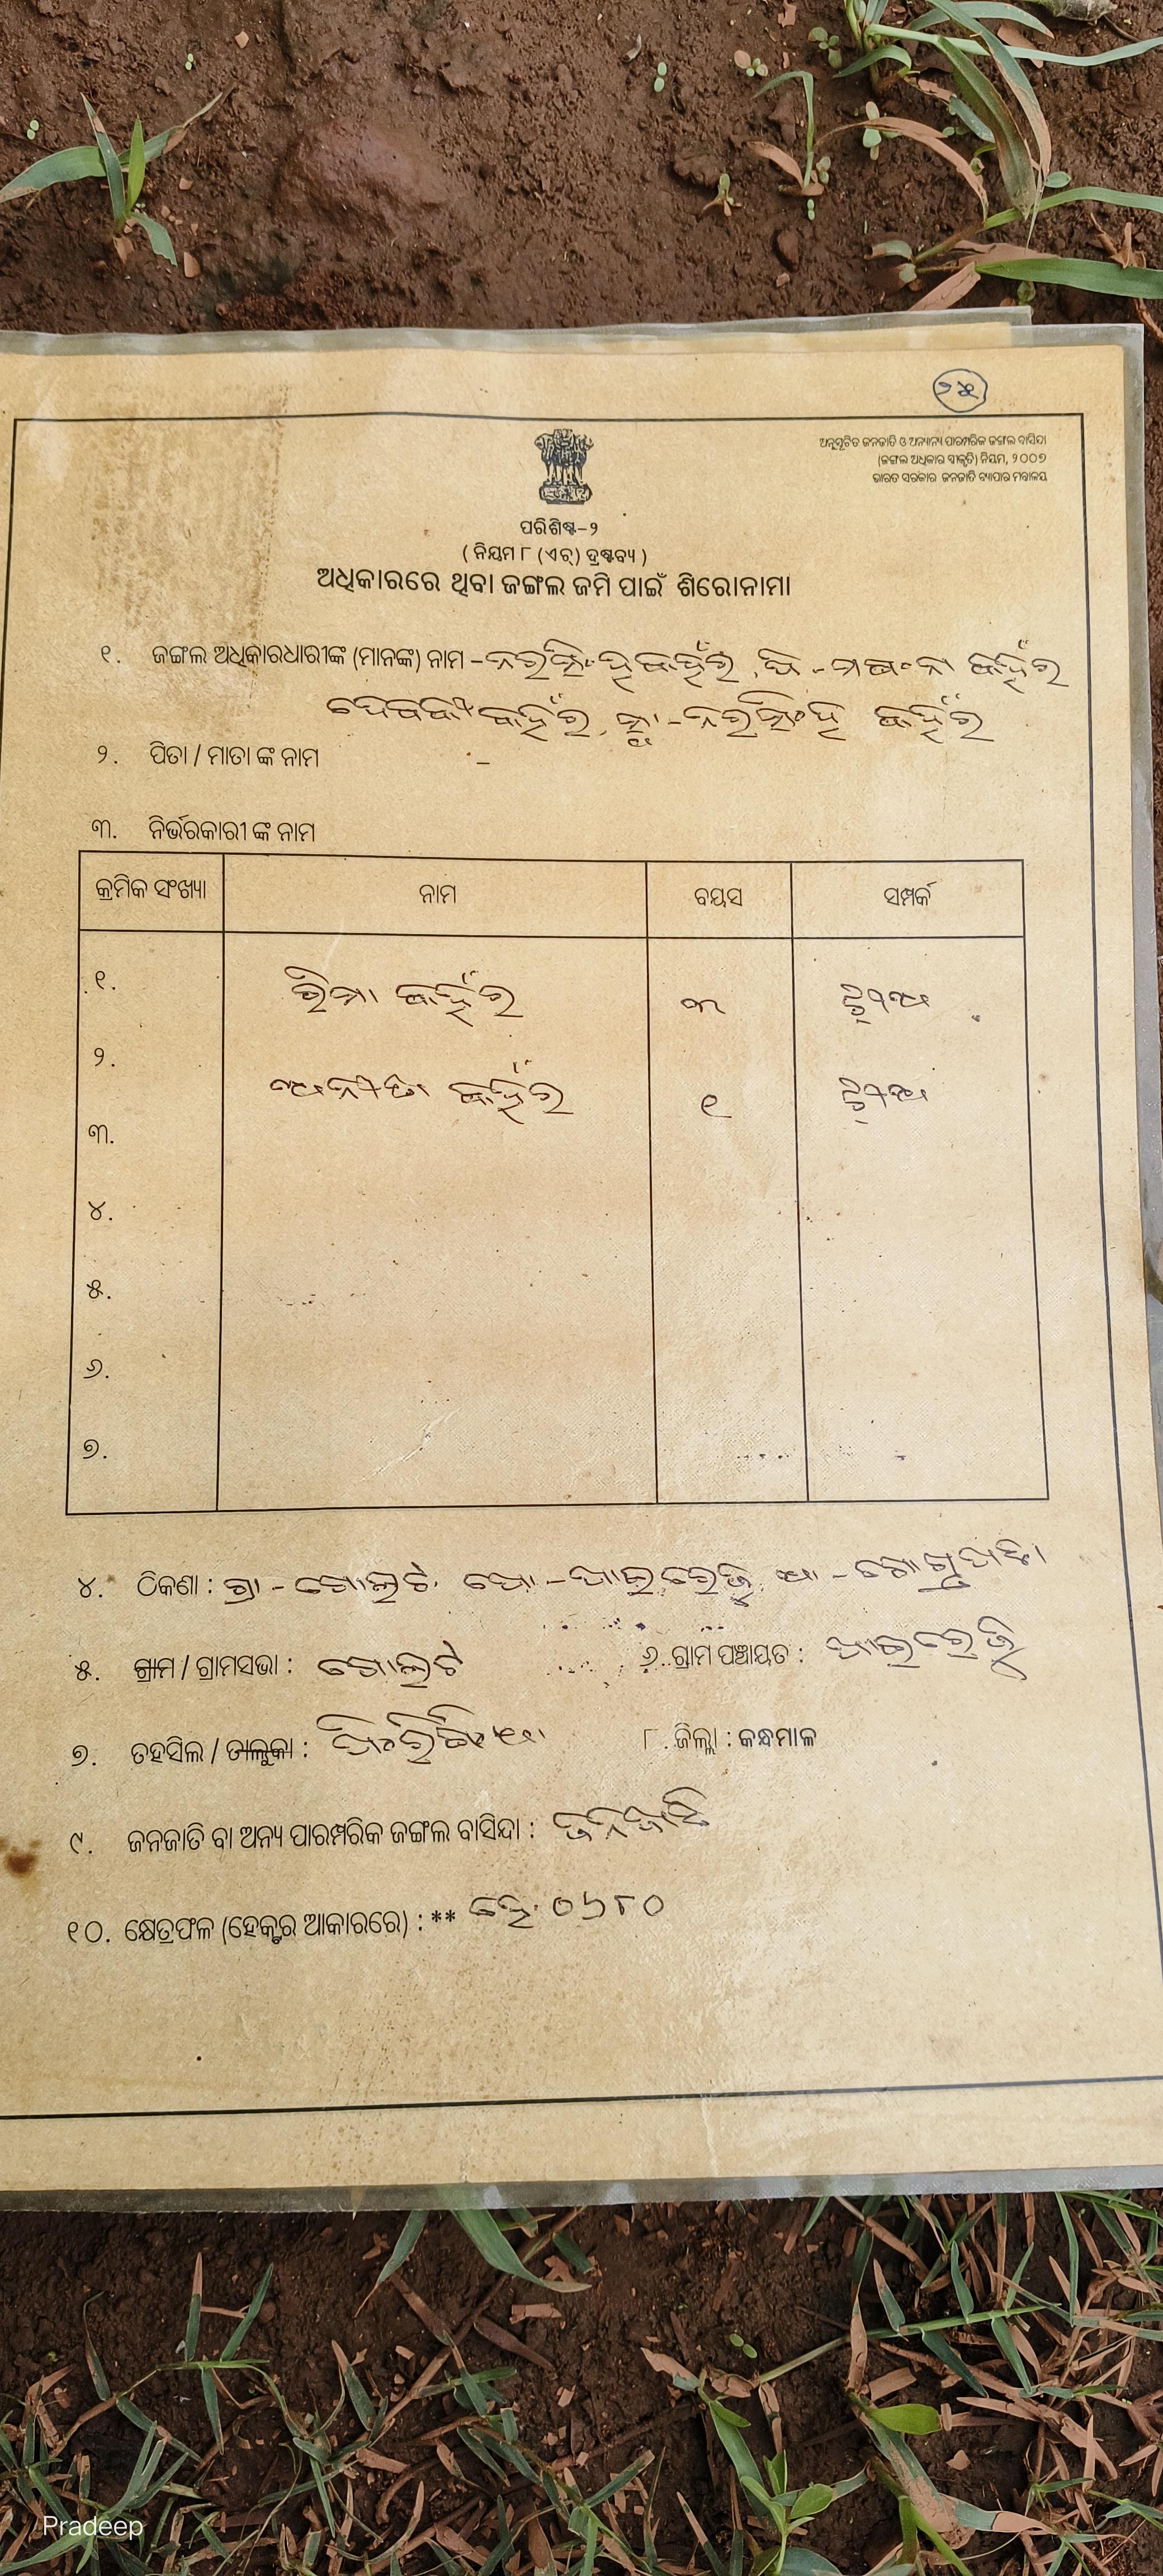 ୨୫
ଅନୁସୂଚିତ ଜନଜାତି ଓ ଅନ୍ୟାନ୍ୟ ପାରମ୍ପରିକ ଜଙ୍ଗଲ ବାସିନ୍ଦା
(ଜଙ୍ଗଲ ଅଧିକାର ସ୍ୱୀକୃତି) ନିୟମ, ୨୦୦୭
ଭାରତ ସରକାର ଜନଜାତି ବ୍ୟାପାର ମନ୍ତ୍ରାଳୟ
ପରିଶିଷ୍ଟ-୨
( ନିୟମ ୮ (ଏଚ୍) ଦ୍ରଷ୍ଟବ୍ୟ )
ଅଧିକାରରେ ଥିବା ଜଙ୍ଗଲ ଜମି ପାଇଁ ଶିରୋନାମା
୧. ଜଙ୍ଗଲ ଅଧିକାରଧାରୀଙ୍କ (ମାନଙ୍କ) ନାମ - ନରସିଂହ କହଁର, ପି -
ଦେବକୀ କହଁର, ସ୍ୱା - ନରସିଂହ କହଁର
୨. ପିତା / ମାତା ଙ୍କ ନାମ -
୩. ନିର୍ଭରକାରୀ ଙ୍କ ନାମ
କ୍ରମିକ ସଂଖ୍ୟା ନାମ ବୟସ ସମ୍ପର୍କ
୧. ରିମା କହଁର ୩ ଝିଅ
୨. କହଁର ୧ ଝିଅ
୩.
୪.
୫.
୬.
୭.
୪. ଠିକଣା : ଗ୍ରା - ପୋ - ପାଇରେଜୁ ଥା -
୫. ଗ୍ରାମ / ଗ୍ରାମସଭା : ୬. ଗ୍ରାମ ପଞ୍ଚାୟତ : ପାଇରେଜୁ
୭. ତହସିଲ / ତାଲୁକା : ଫିରିଙ୍ଗିଆ ୮. ଜିଲ୍ଲା : କନ୍ଧମାଳ
୯. ଜନଜାତି ବା ଅନ୍ୟ ପାରମ୍ପରିକ ଜଙ୍ଗଲ ବାସିନ୍ଦା : ଜନଜାତି
୧୦. କ୍ଷେତ୍ରଫଳ (ହେକ୍ଟର ଆକାରରେ) : ** ହେ. ୦୬୮୦
Pradeep